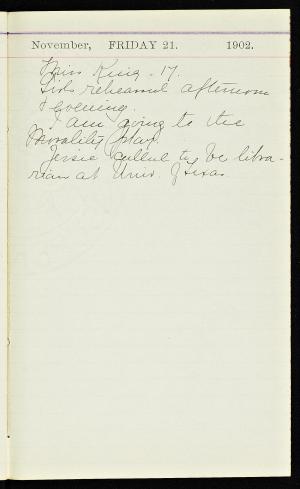 November, FRIDAY 21. 1902.
Miss King - 17.
Girls rehearsal afternoon
& evening.
I am going to the
Morality play.
Jessie called to be libra-
rian at Univ. of Texas.